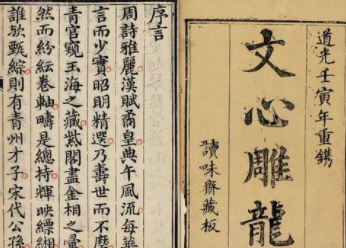 道光壬寅年重鐫
文心雕龍
讀味齋藏板
序言
周詩雅麗漢賦喬皇典午風流每華
言而少實昭明精選乃壽世而不磨
青官窺玉海之藏紫閣盡金相之彙
然而紛紜卷軸疇是總持輝映縹緗
誰歟甄綜則有青州才子宋代公孫